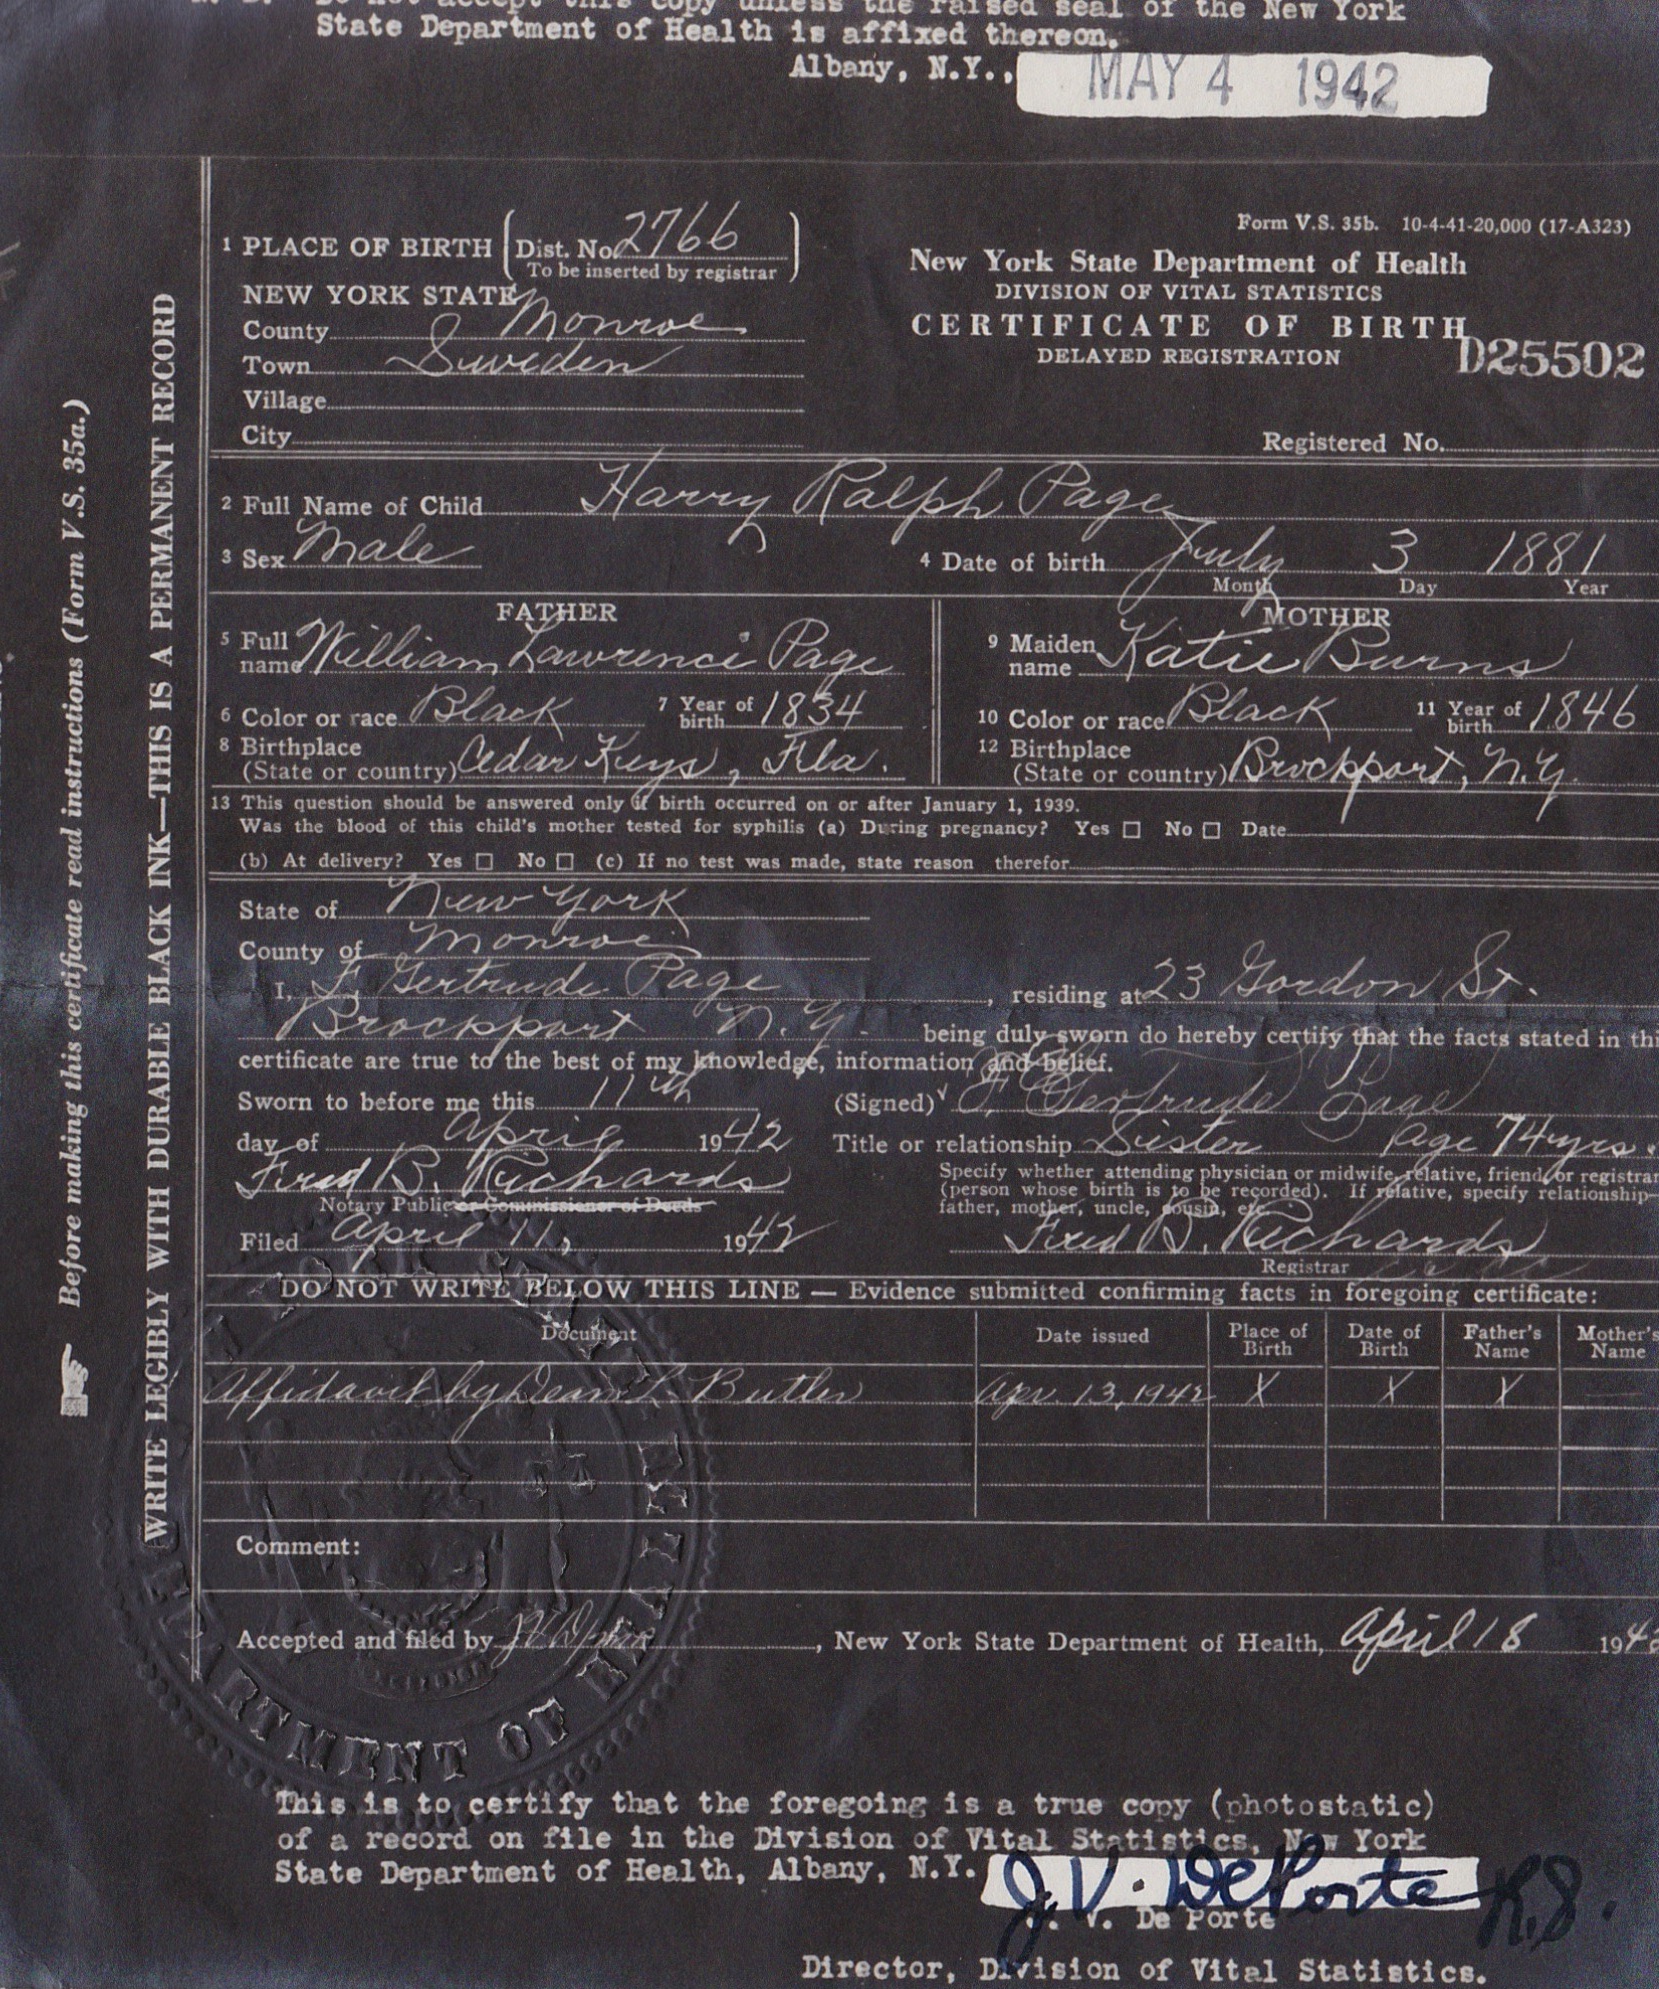 Do not accept this copy unless the raised seal of the New York
State Department of Health is affixed thereon.
Albany, N.Y., MAY 4 1942
Form V.S. 35b. 10-4-41-20,000 (17-A323)
1 PLACE OF BIRTH (Dist. No. 2766
To be inserted by registrar)
NEW YORK STATE
County Monroe
Town Sweden
Village
City
New York State Department of Health
DIVISION OF VITAL STATISTICS
CERTIFICATE OF BIRTH
DELAYED REGISTRATION
D25502
Registered No.
2 Full Name of Child Harry Ralph Page
3 Sex Male 4 Date of birth July 3 1881
Month Day Year
FATHER
5 Full name William Lawrence Page
6 Color or race Black 7 Year of birth 1834
8 Birthplace (State or country) Cedar Keys, Fla.
MOTHER
9 Maiden name Katie Burns
10 Color or race Black 11 Year of birth 1846
12 Birthplace (State or country) Brockport, N.Y.
13 This question should be answered only if birth occurred on or after January 1, 1939.
Was the blood of this child's mother tested for syphilis (a) During pregnancy? Yes ☐ No ☐ Date
(b) At delivery? Yes ☐ No ☐ (c) If no test was made, state reason therefor
State of New York
County of Monroe
I, F. Gertrude Page, residing at 23 Gordon St.
Brockport N.Y. being duly sworn do hereby certify that the facts stated in thi
certificate are true to the best of my knowledge, information and belief.
Sworn to before me this 11th (Signed) F. Gertrude Page
day of April 1942 Title or relationship Sister age 74 yrs.
Fred B. Richards
Notary Public or Commissioner of Deeds
Specify whether attending physician or midwife, relative, friend, or registrar
(person whose birth is to be recorded). If relative, specify relationship—
father, mother, uncle, cousin, etc.
Filed April 11, 1942 Fred B. Richards
Registrar
DO NOT WRITE BELOW THIS LINE — Evidence submitted confirming facts in foregoing certificate:
Document Date issued Place of Birth Date of Birth Father's Name Mother's Name
Affidavit by Dean L. Butler Apr. 13, 1942 X X X —
Comment:
Accepted and filed by , New York State Department of Health, April 18 1942
This is to certify that the foregoing is a true copy (photostatic)
of a record on file in the Division of Vital Statistics, New York
State Department of Health, Albany, N.Y. J.V. DePorte R.S.
J. V. De Porte
Director, Division of Vital Statistics.
WRITE LEGIBLY WITH DURABLE BLACK INK—THIS IS A PERMANENT RECORD
Before making this certificate read instructions (Form V.S. 35a.)
DEPARTMENT OF HEALTH